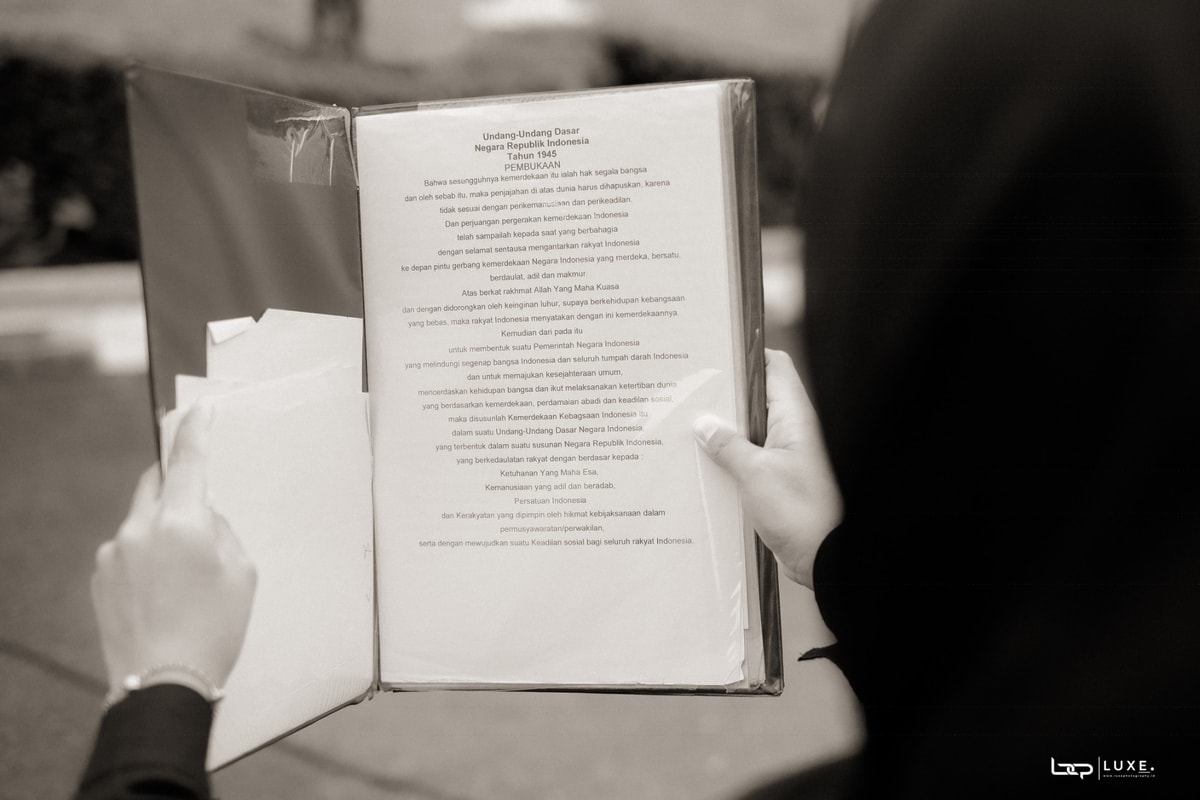 Undang-Undang Dasar
Negara Republik Indonesia
Tahun 1945
PEMBUKAAN
Bahwa sesungguhnya kemerdekaan itu ialah hak segala bangsa
dan oleh sebab itu, maka penjajahan di atas dunia harus dihapuskan, karena
tidak sesuai dengan perikemanusiaan dan perikeadilan.
Dan perjuangan pergerakan kemerdekaan Indonesia
telah sampailah kepada saat yang berbahagia
dengan selamat sentausa mengantarkan rakyat Indonesia
ke depan pintu gerbang kemerdekaan Negara Indonesia yang merdeka, bersatu,
berdaulat, adil dan makmur.
Atas berkat rakhmat Allah Yang Maha Kuasa
dan dengan didorongkan oleh keinginan luhur, supaya berkehidupan kebangsaan
yang bebas, maka rakyat Indonesia menyatakan dengan ini kemerdekaannya.
Kemudian dari pada itu
untuk membentuk suatu Pemerintah Negara Indonesia
yang melindungi segenap bangsa Indonesia dan seluruh tumpah darah Indonesia
dan untuk memajukan kesejahteraan umum,
mencerdaskan kehidupan bangsa dan ikut melaksanakan ketertiban dunia
yang berdasarkan kemerdekaan, perdamaian abadi dan keadilan sosial,
maka disusunlah Kemerdekaan Kebagsaan Indonesia itu
dalam suatu Undang-Undang Dasar Negara Indonesia,
yang terbentuk dalam suatu susunan Negara Republik Indonesia,
yang berkedaulatan rakyat dengan berdasar kepada :
Ketuhanan Yang Maha Esa,
Kemanusiaan yang adil dan beradab,
Persatuan Indonesia
dan Kerakyatan yang dipimpin oleh hikmat kebijaksanaan dalam
permusyawaratan/perwakilan,
serta dengan mewujudkan suatu Keadilan sosial bagi seluruh rakyat Indonesia.
LUXE.